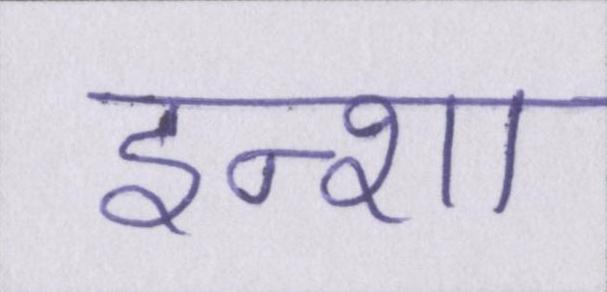 इन्शा